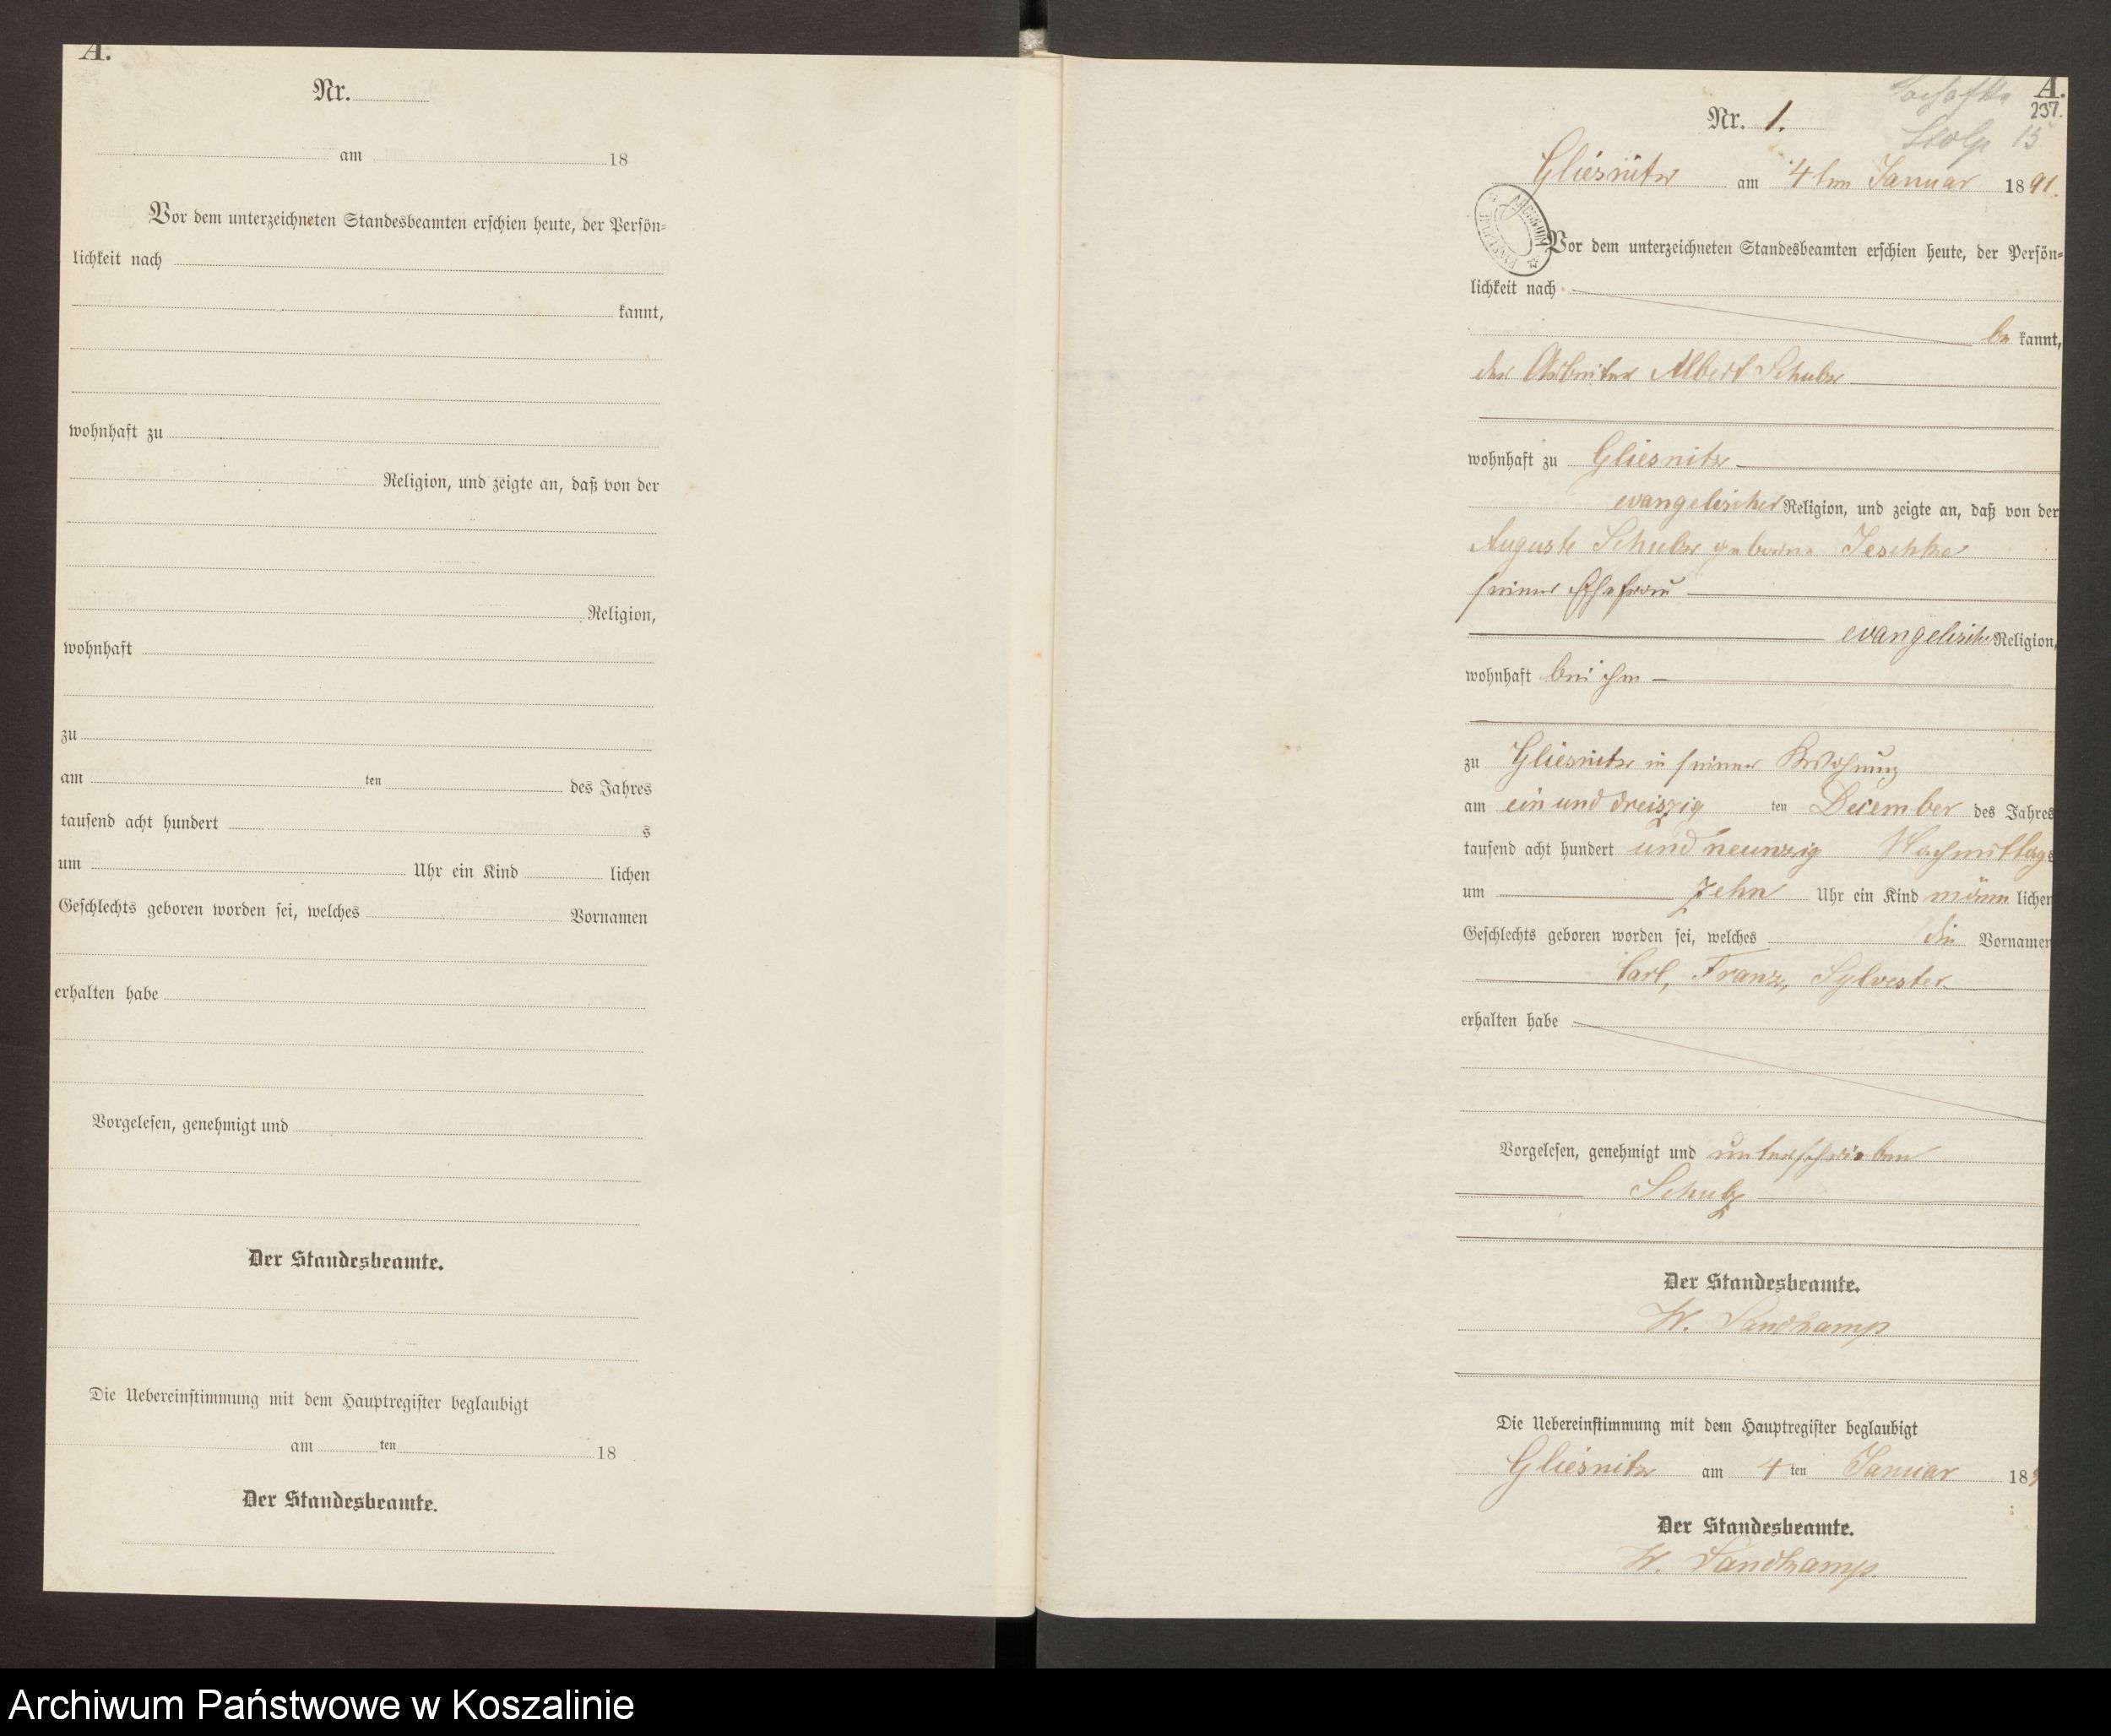 A.
Nr.
am 18
Vor dem unterzeichneten Standesbeamten erschien heute, der Persön-
lichkeit nach
kannt,
wohnhaft zu
Religion, und zeigte an, daß von der
Religion,
wohnhaft
zu
am ten des Jahres
tausend acht hundert s
um Uhr ein Kind lichen
Geschlechts geboren worden sei, welches Vornamen
erhalten habe
Vorgelesen, genehmigt und
Der Standesbeamte.
Die Uebereinstimmung mit dem Hauptregister beglaubigt
am ten 18
Der Standesbeamte.
A.
237.
Nr. 1.
Stolp 15
Gliesnitz am 4ten Januar 1891.
ARCHIWUM
Vor dem unterzeichneten Standesbeamten erschien heute, der Persön-
lichkeit nach
be kannt,
der Arbeiter Albert Schulz
wohnhaft zu Gliesnitz
evangelischer Religion, und zeigte an, daß von der
Auguste Schulz geborene Jeschke
seiner Ehefrau
evangelischer Religion,
wohnhaft bei ihm
zu Gliesnitz in seiner Wohnung
am ein und dreiszig ten December des Jahres
tausend acht hundert und neunzig Nachmittags
um zehn Uhr ein Kind männ lichen
Geschlechts geboren worden sei, welches die Vornamen
Carl, Franz, Sylvester
erhalten habe
Vorgelesen, genehmigt und unterschrieben
Schulz
Der Standesbeamte.
W. Sandkamp
Die Uebereinstimmung mit dem Hauptregister beglaubigt
Gliesnitz am 4 ten Januar 189
Der Standesbeamte.
W. Sandkamp.
Archiwum Państwowe w Koszalinie